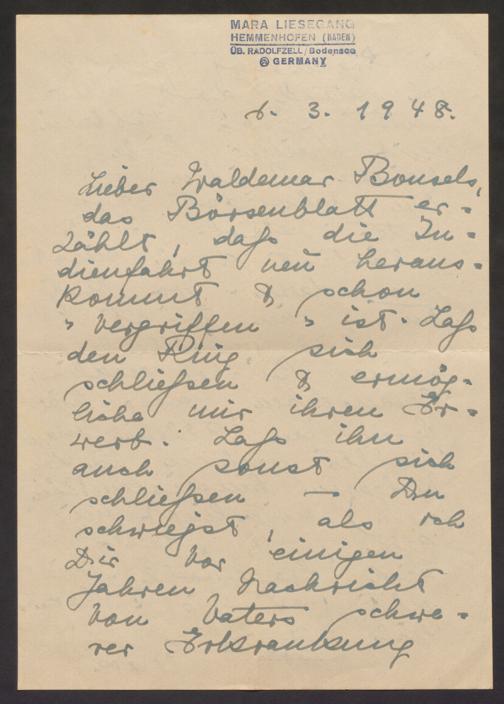 MARA LIESEGANG
HEMMENHOFEN (BADEN)
ÜB. RADOLFZELL/Bodensee
GERMANY
6. 3. 1948.
Lieber Waldemar Bonsels,
das Börsenblatt er=
zählt, daß die In=
dienfahrt neu heraus=
kommt & schon
"vergriffen" ist. Laß
den Ring sich
schließen & ermög=
liche mir ihren Er=
werb. Laß ihn
auch sonst sich
schließen – Du
schwiegst, als ich
Dir vor einigen
Jahren Nachricht
von Vaters schwe=
rer Erkrankung